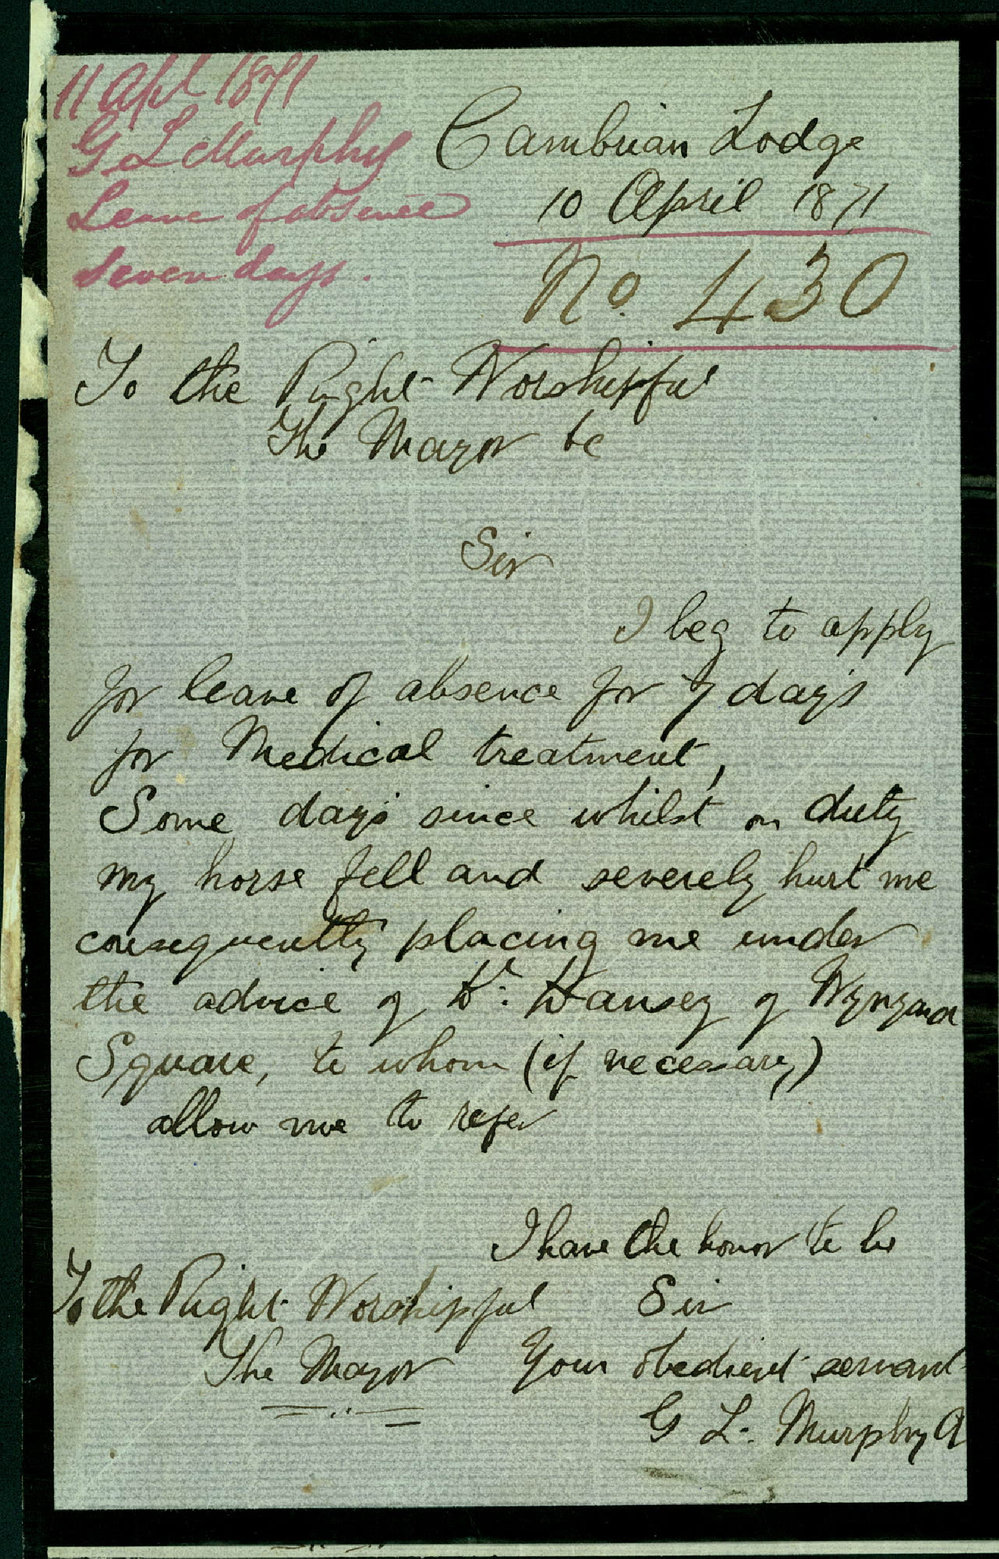 11 Apl 1871
G L Murphy
Leave of absence
seven days.
Cambrian Lodge
10 April 1871
No. 430
To the Right Worshipful
The Mayor &c
Sir
I beg to apply
for leave of absence for 7 days
for Medical treatment,
Some days since whilst on duty
my horse fell and severely hurt me
consequently placing me under
the advice of Dr. Dansey of Wynyard
Square, to whom (if necessary)
allow me to refer
I have the honor to be
Sir
Your obedient servant
G L. Murphy
To the Right Worshipful
The Mayor